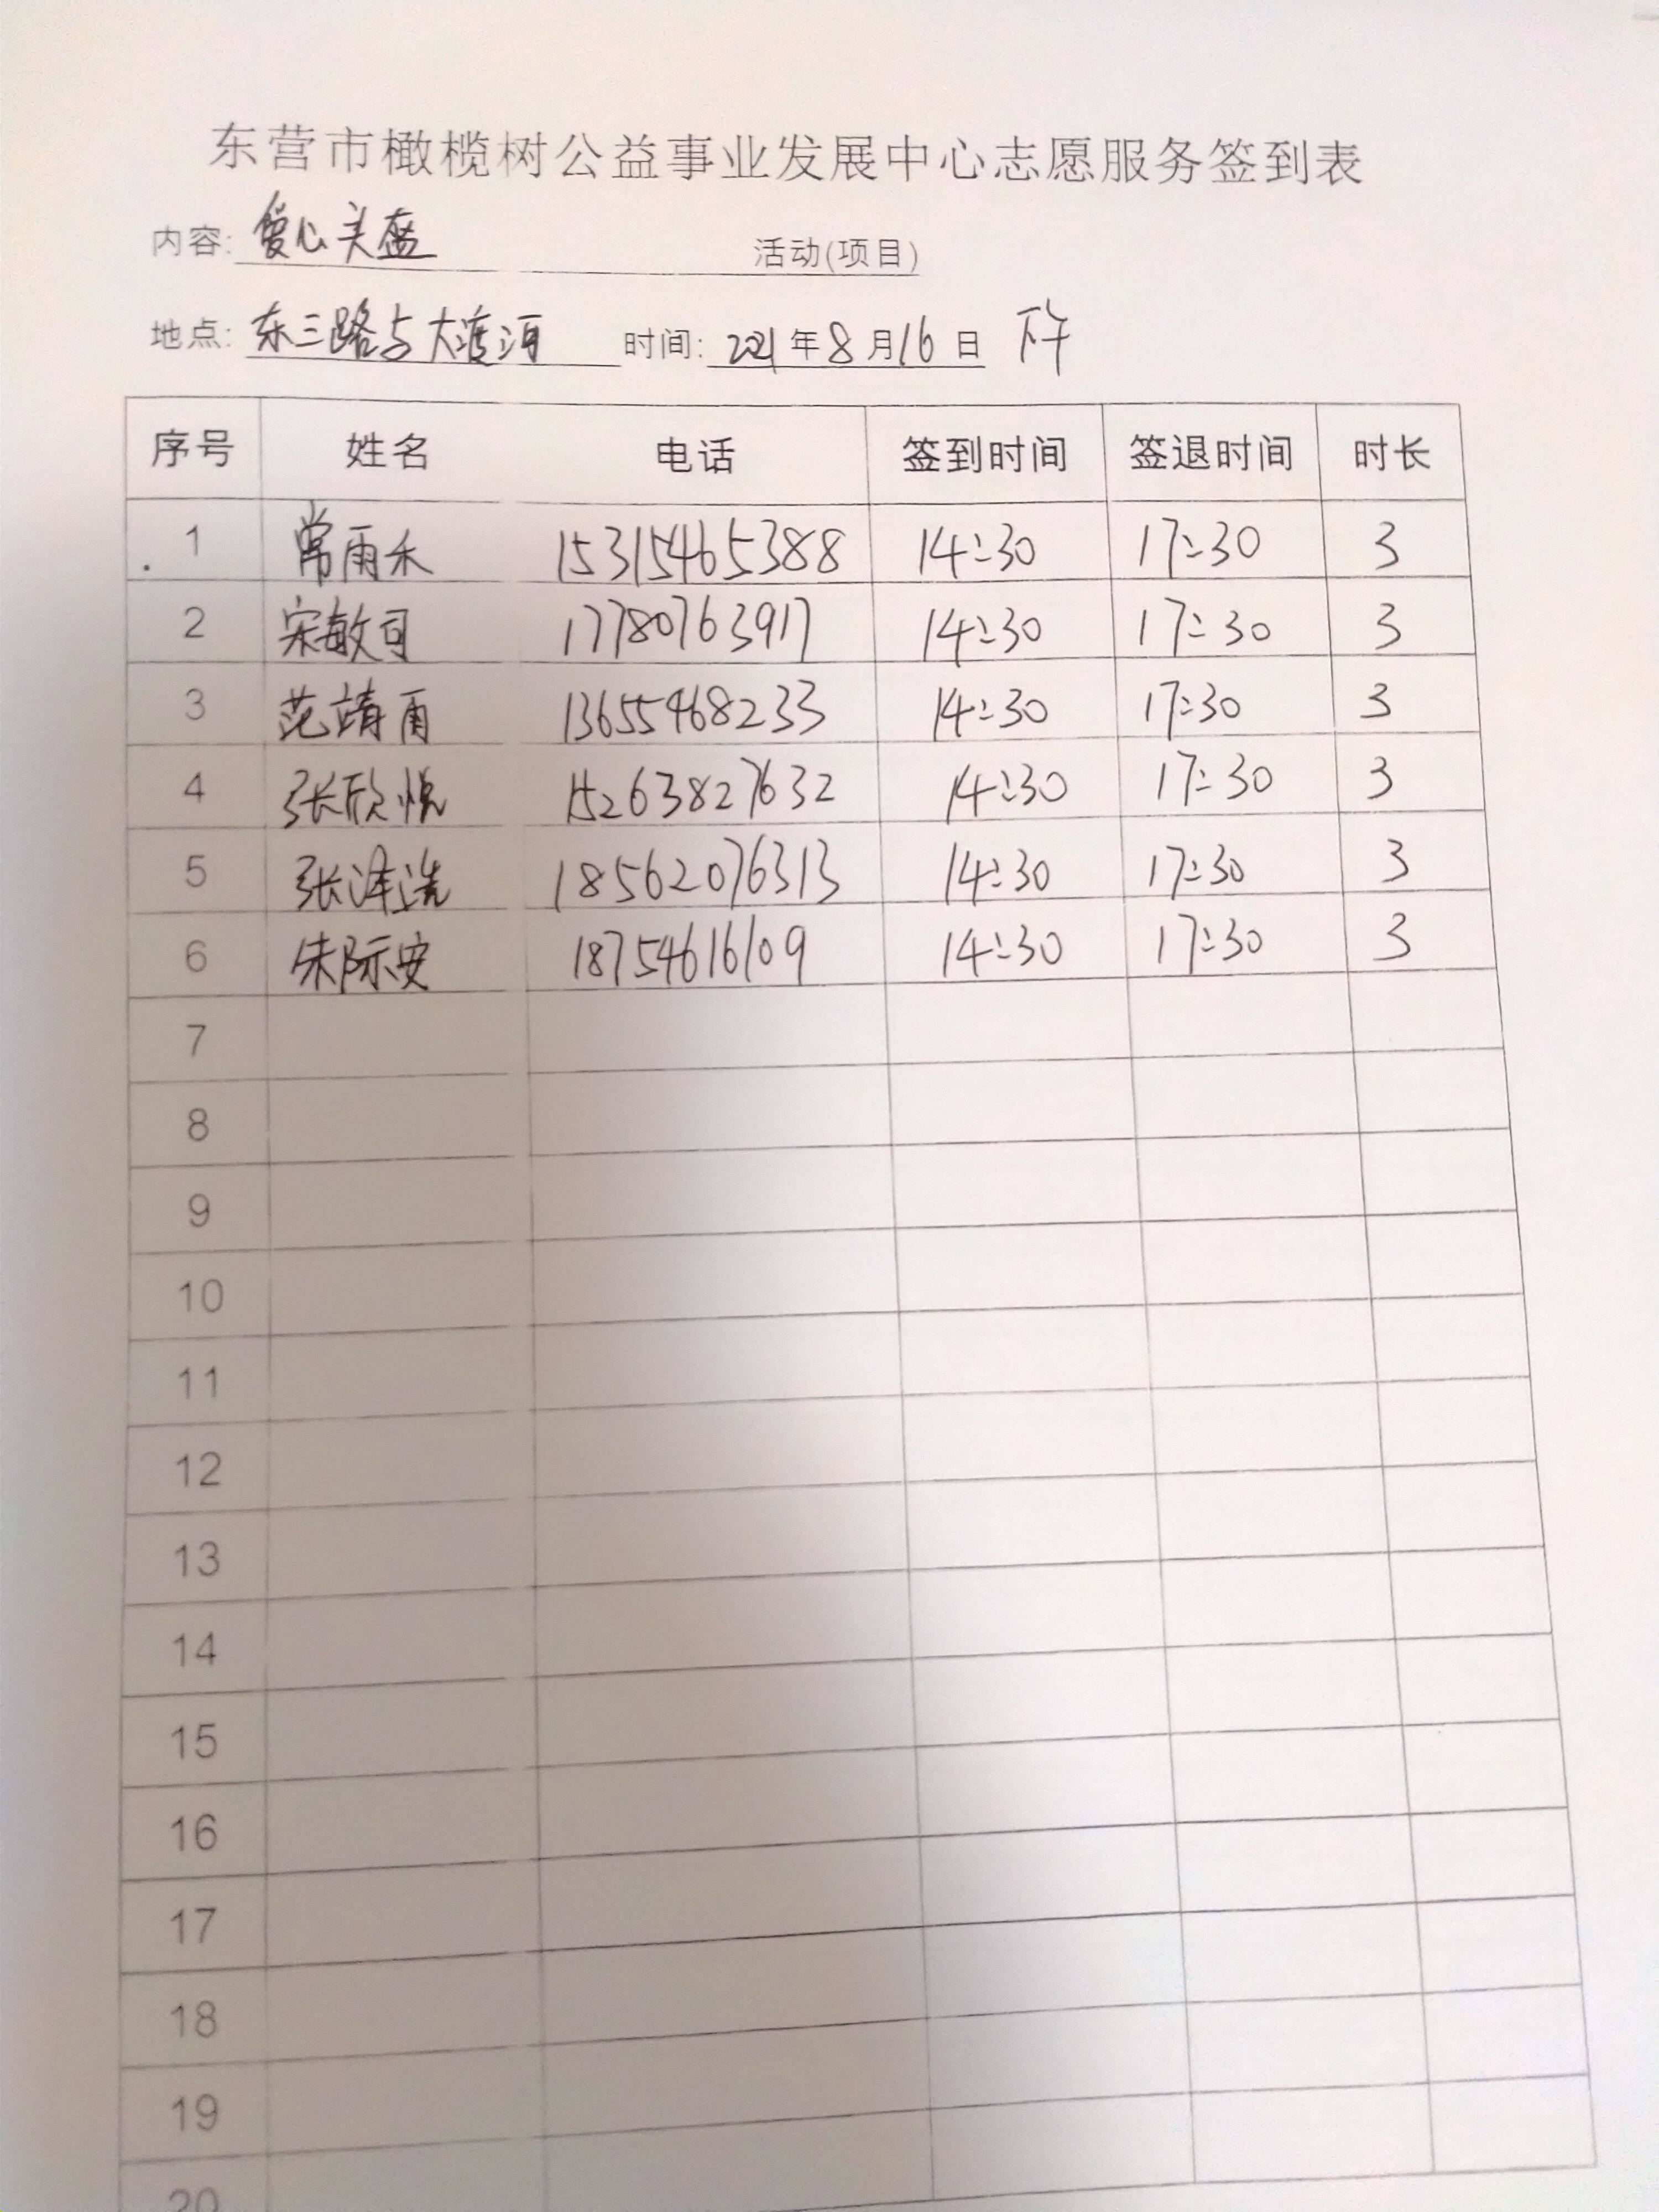 东营市橄榄树公益事业发展中心志愿服务签到表
内容: 爱心头盔 活动(项目)
地点: 东三路与大渡河 时间: 2021年8月16日 下午
序号 姓名 电话 签到时间 签退时间 时长
1 常雨禾 15315465388 14:30 17:30 3
2 宋敏可 17780763917 14:30 17:30 3
3 范靖雨 13655468233 14:30 17:30 3
4 张欣悦 15263827632 14:30 17:30 3
5 张泽选 18562076313 14:30 17:30 3
6 朱际安 18754616109 14:30 17:30 3
7
8
9
10
11
12
13
14
15
16
17
18
19
20